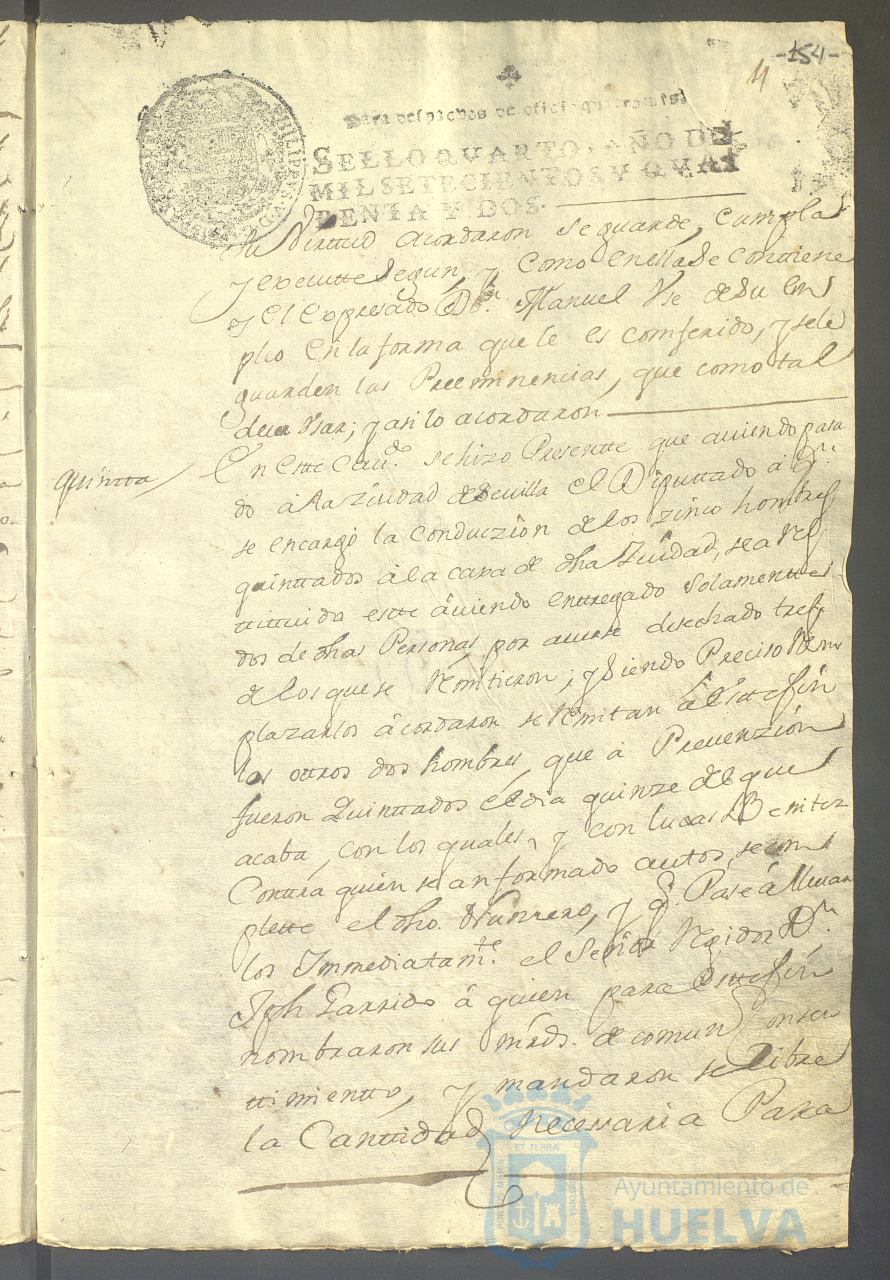 -154-
11
Para despachos de oficio quatro mrs
SELLO QVARTO, AÑO DE
MIL SETECIENTOS Y QVAR
RENTA Y DOS.
Su Virttud acordaron se guarde, cumpla
y executte segun, y como en ella se conttiene
y el expresado Dn. Manuel Vse de su Em
pleo en la forma que le es comferido, y sele
guarden las Preeminencias, que como tal
deve Vsar; y asi lo acordaron
quintta
En estte Cavdo. se hizo Presentte que aviendo pasa
do â la Ziudad de Sevilla el Diputtado â qn.
se encargô la conduczion de los zinco hombres
quinttados â la caxa de dha Ziudad, se a Res
ttittuido estte âviendo enttregado solamentte
dos de dhas Personas por averse desechado tres
de los que se Remitieron; y siendo Preciso Rem
plazarlos âcordaron se Remitan â estte fin
los ottros dos hombres, que â Prevenzion
fueron Quinttados el dia quinze del que
acaba, con los quales, y con Lucas Benitez
Conttra quien se an formado auttos, se com
plette el dho. Numero, y q. Pase â llevar
los Ymmediatamte. el Señor Regidor Dn.
Jph Garrido â quien para estte fin
nombraron sus mrds. de comun consen
ttimientto, y mandaron se libre
la Canttidad necesaria Para
ET TERRÆ
Ayuntamiento de
HUELVA